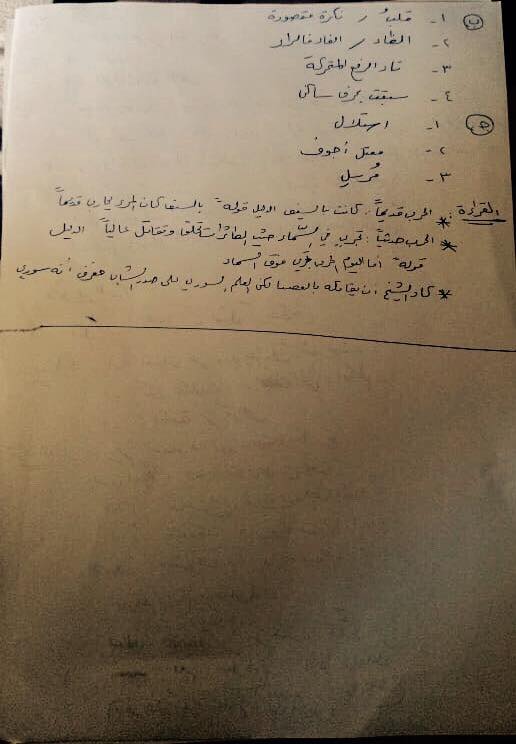 ب ١- قلبُ / نكرة مقصودة
٢- الظاء / الفاء فالراء
٣- تاء الرفع المتحركة
٤- سبقت بحرف ساكن
ج ١- استهلال
٢- معتل أجوف
٣- مُرسل
القراءة: * الحرب قديماً: كانت بالسيف الدليل قوله" بالسيف كان المرء يحارب قديماً
* الحرب حديثاً: تجري في السّماء حيث الطائرات تحلق وتقاتل عالياً الدليل
قوله" أما اليوم الحرب تجري فوق السماء
* كاد الشيخ أن يقاتله بالعصا لكن العلم السوري على صدر الشاب فعرف أنه سوري